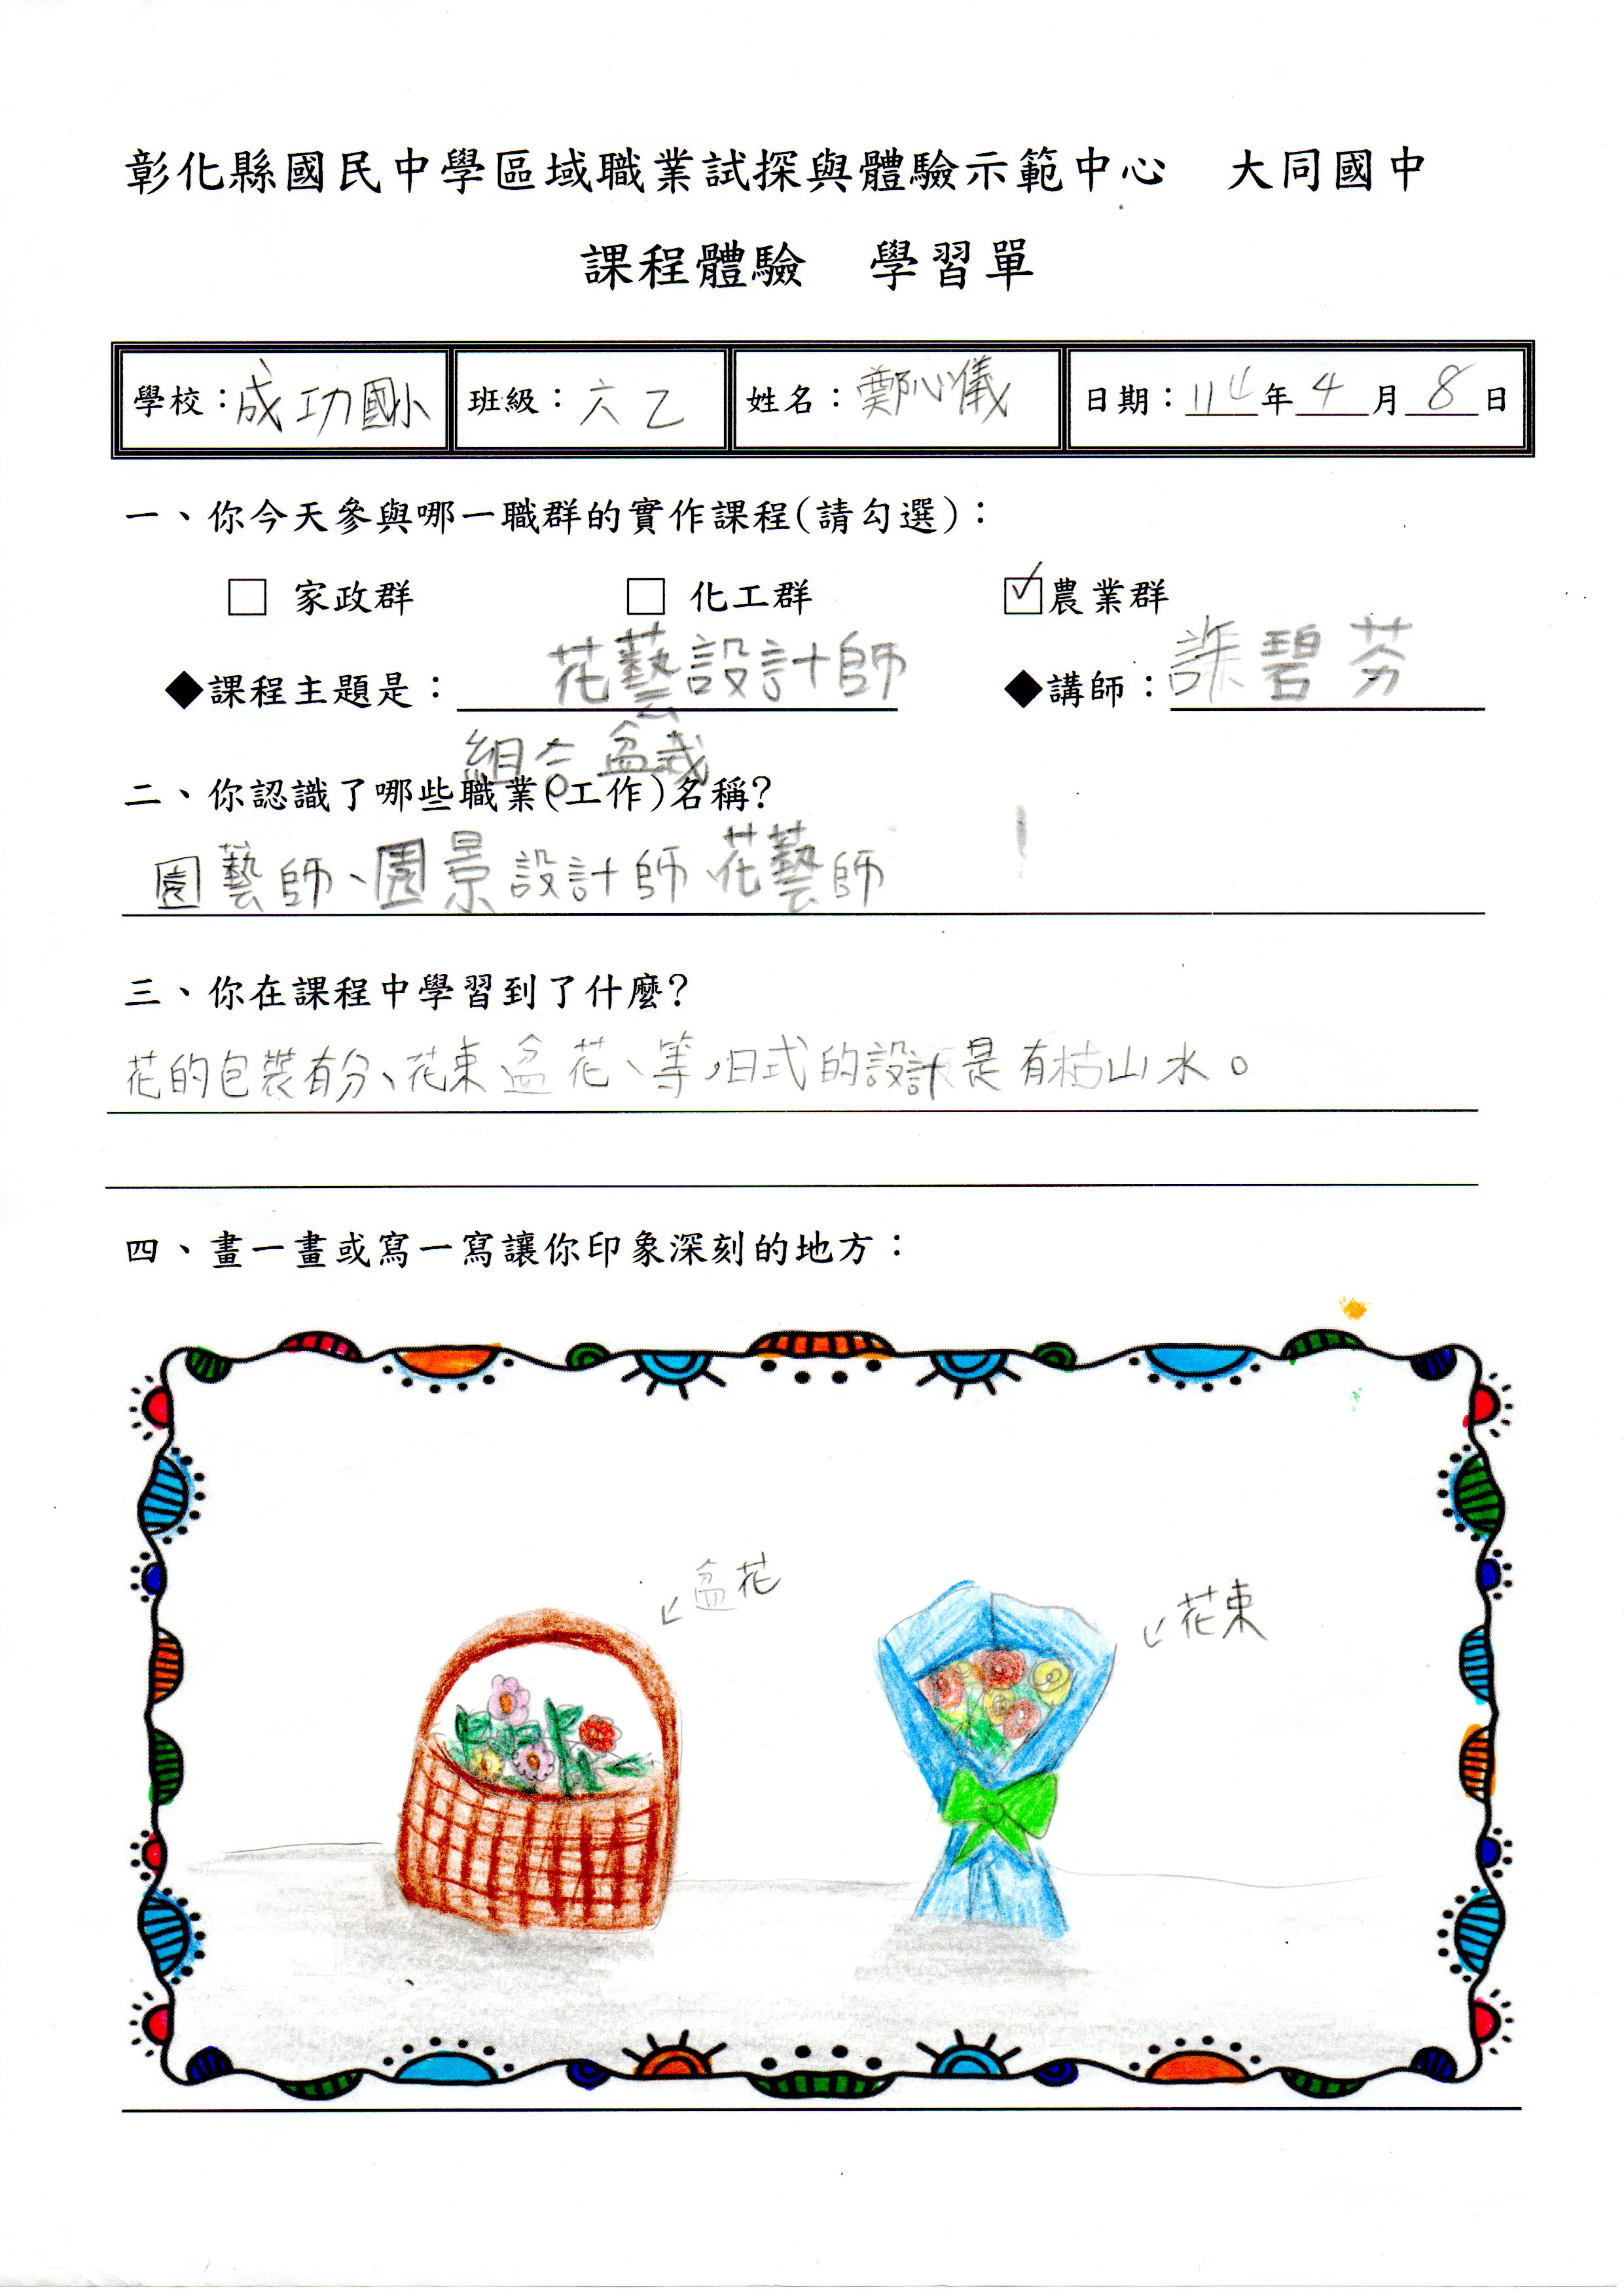 彰化縣國民中學區域職業試探與體驗示範中心　大同國中
課程體驗　學習單
學校：成功國小 班級：六乙 姓名：鄭心儀 日期：114年4月8日
一、你今天參與哪一職群的實作課程(請勾選)：
□ 家政群 □ 化工群 ☑農業群
◆課程主題是：花藝設計師 ◆講師：許碧芬
組合盆栽
二、你認識了哪些職業(工作)名稱?
園藝師、園景設計師、花藝師
三、你在課程中學習到了什麼?
花的包裝有分、花束、盆花、等，日式的設計是有枯山水。
四、畫一畫或寫一寫讓你印象深刻的地方：
盆花
花束